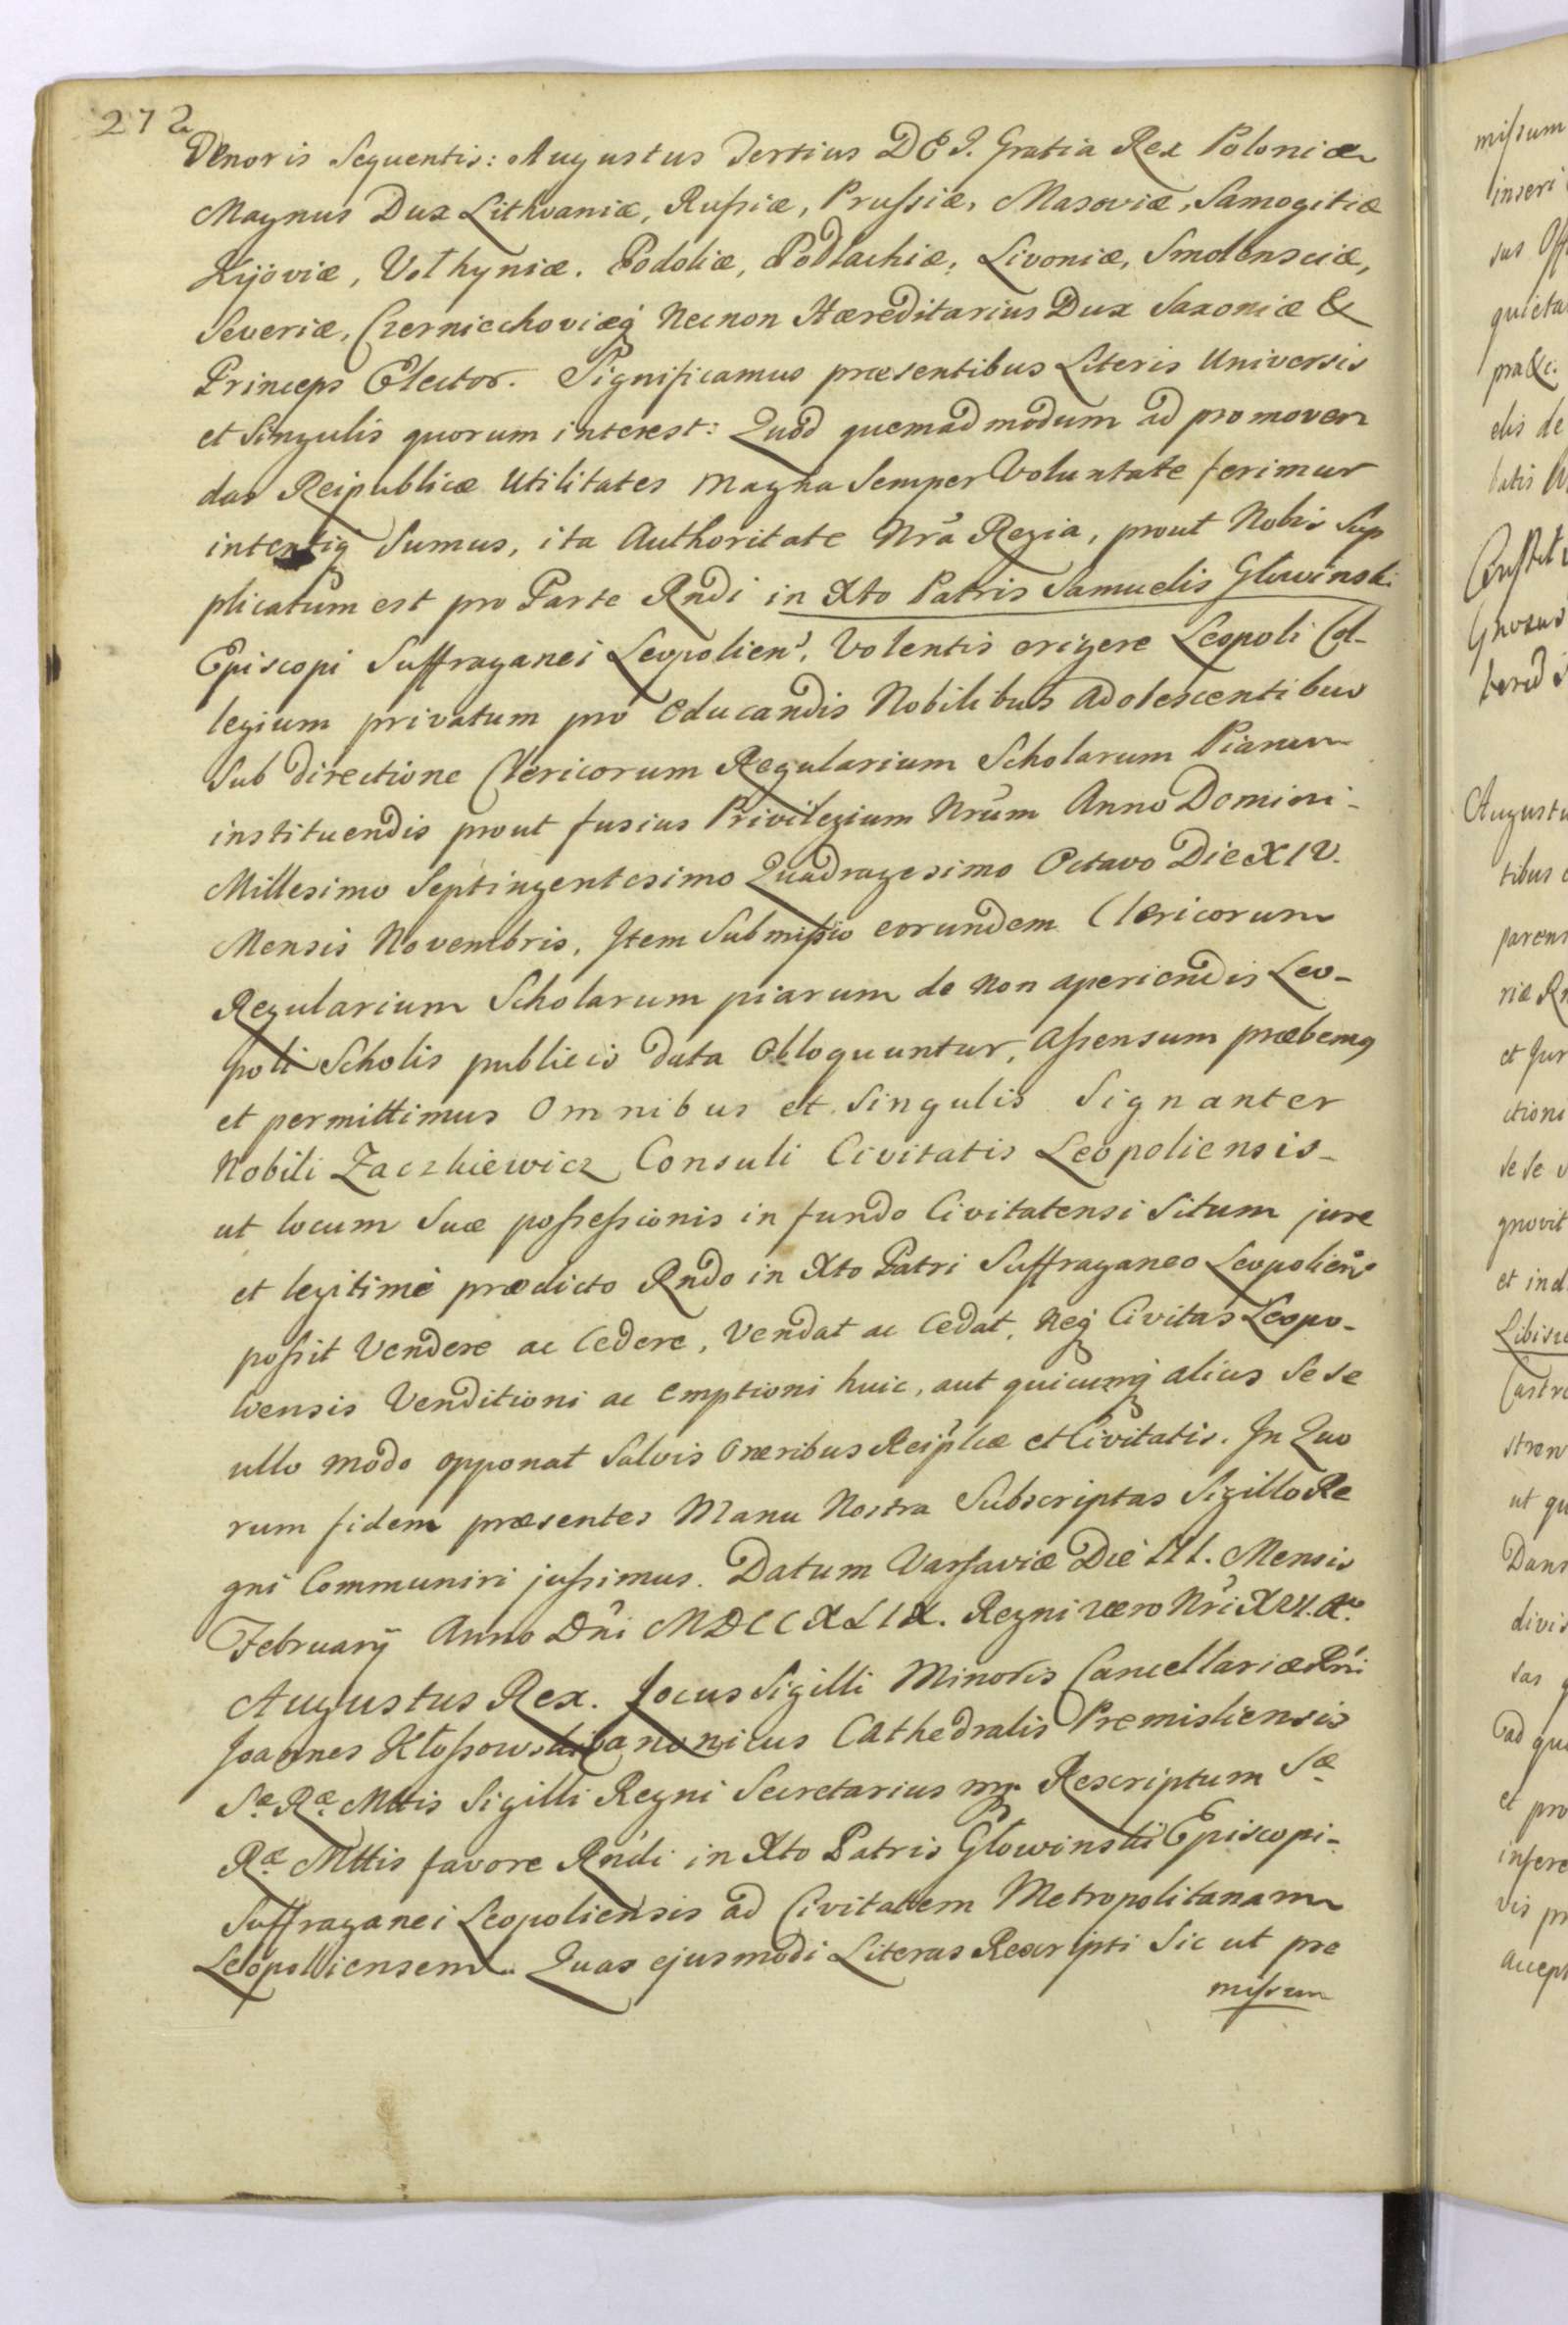 272
Tenoris Sequentis: Augustus Tertius DEI. Gratia Rex Poloniæ
Magnus Dux Lithvaniæ, Rußiæ, Prußiæ, Masoviæ, Samogitiæ
Kijoviæ, Volhyniæ, Podoliæ, Podlachiæ, Livoniæ, Smolensciæ,
Severiæ, Czerniechoviæq́ Necnon Hæreditarius Dux Saxoniæ &
Princeps Elector. Significamus præsentibus Literis Universis
et Singulis quorum interest: Quod quemadmodum ad promoven
das Reipublicæ Utilitates magna Semper Voluntate ferimur
intentiq Sumus, ita Authoritate Nrã Regia, prout Nobis Sup
plicatum est pro Parte Rndi in Xto Patris Samuelis Głowinski
Episcopi Suffraganei Leopolien, Volentis erigere Leopoli Col-
legium privatum pro Educandis Nobilibus adolescentibus
Sub directione Clericorum Regularium Scholarum Piarum
instituendis prout fusius Privilegium Nrũm Anno Domini-
Millesimo Septingentesimo Quadragesimo Octavo Die XIV.
Mensis Novembris, Item Submißio eorundem Clericorum
Regularium Scholarum piarum de non aperiendis Leo-
poli Scholis publicis data Obloquuntur, Aßensum præbemq
et permittimus Omnibus et Singulis Signanter
Nobili Zaczkiewicz Consuli Civitatis Leopoliensis-
ut locum Suæ poßeßionis in fundo Civitatensi Situm jure
et legitimè prædicto Rndo in Xto Patri Suffraganeo Leopolien
poßit Vendere ac Cedere, Vendat ac Cedat, Neq́ Civitas Leopo-
liensis Venditioni ac Emptioni huic, aut quicunq́ alius Sese
ullo modo opponat Salvis Oneribus Reiplcæ et Civitatis. In Quo
rum fidem præsentes Manu Nostra Subscriptas Sigillo Re
gni Communiri jußimus. Datum Varsaviæ Die III. Mensis
Februarij Anno Dñi MDCCXLIX. Regni vero Nri XVI. Aº
Augustus Rex. Locus Sigilli Minoris Cancellariæ Rni
Joannes Kłoßowski Canonicus Cathedralis Premisliensis
Sæ. Ræ. Mttis Sigilli Regni Secretarius mp. Rescriptum Sæ
Ræ Mttis favore Rńdi in Xto Patris Głowinski Episcopi-
Suffraganei Leopoliensis ad Civitatem Metropolitanam
Leopoliensem. Quas ejusmodi Literas Rescripti Sic ut præ
mißum
mißum
inseri
sus Off
quieta
pra&c.
elis de
batis
Gnosus
Augustu
tibus
parens
riæ
et Jur
ctioni
Sese
gnovit
et ind
Castr
stren
ut qu
Dans
divis
sas
ad qu
et pro
insere
vis pr
accept